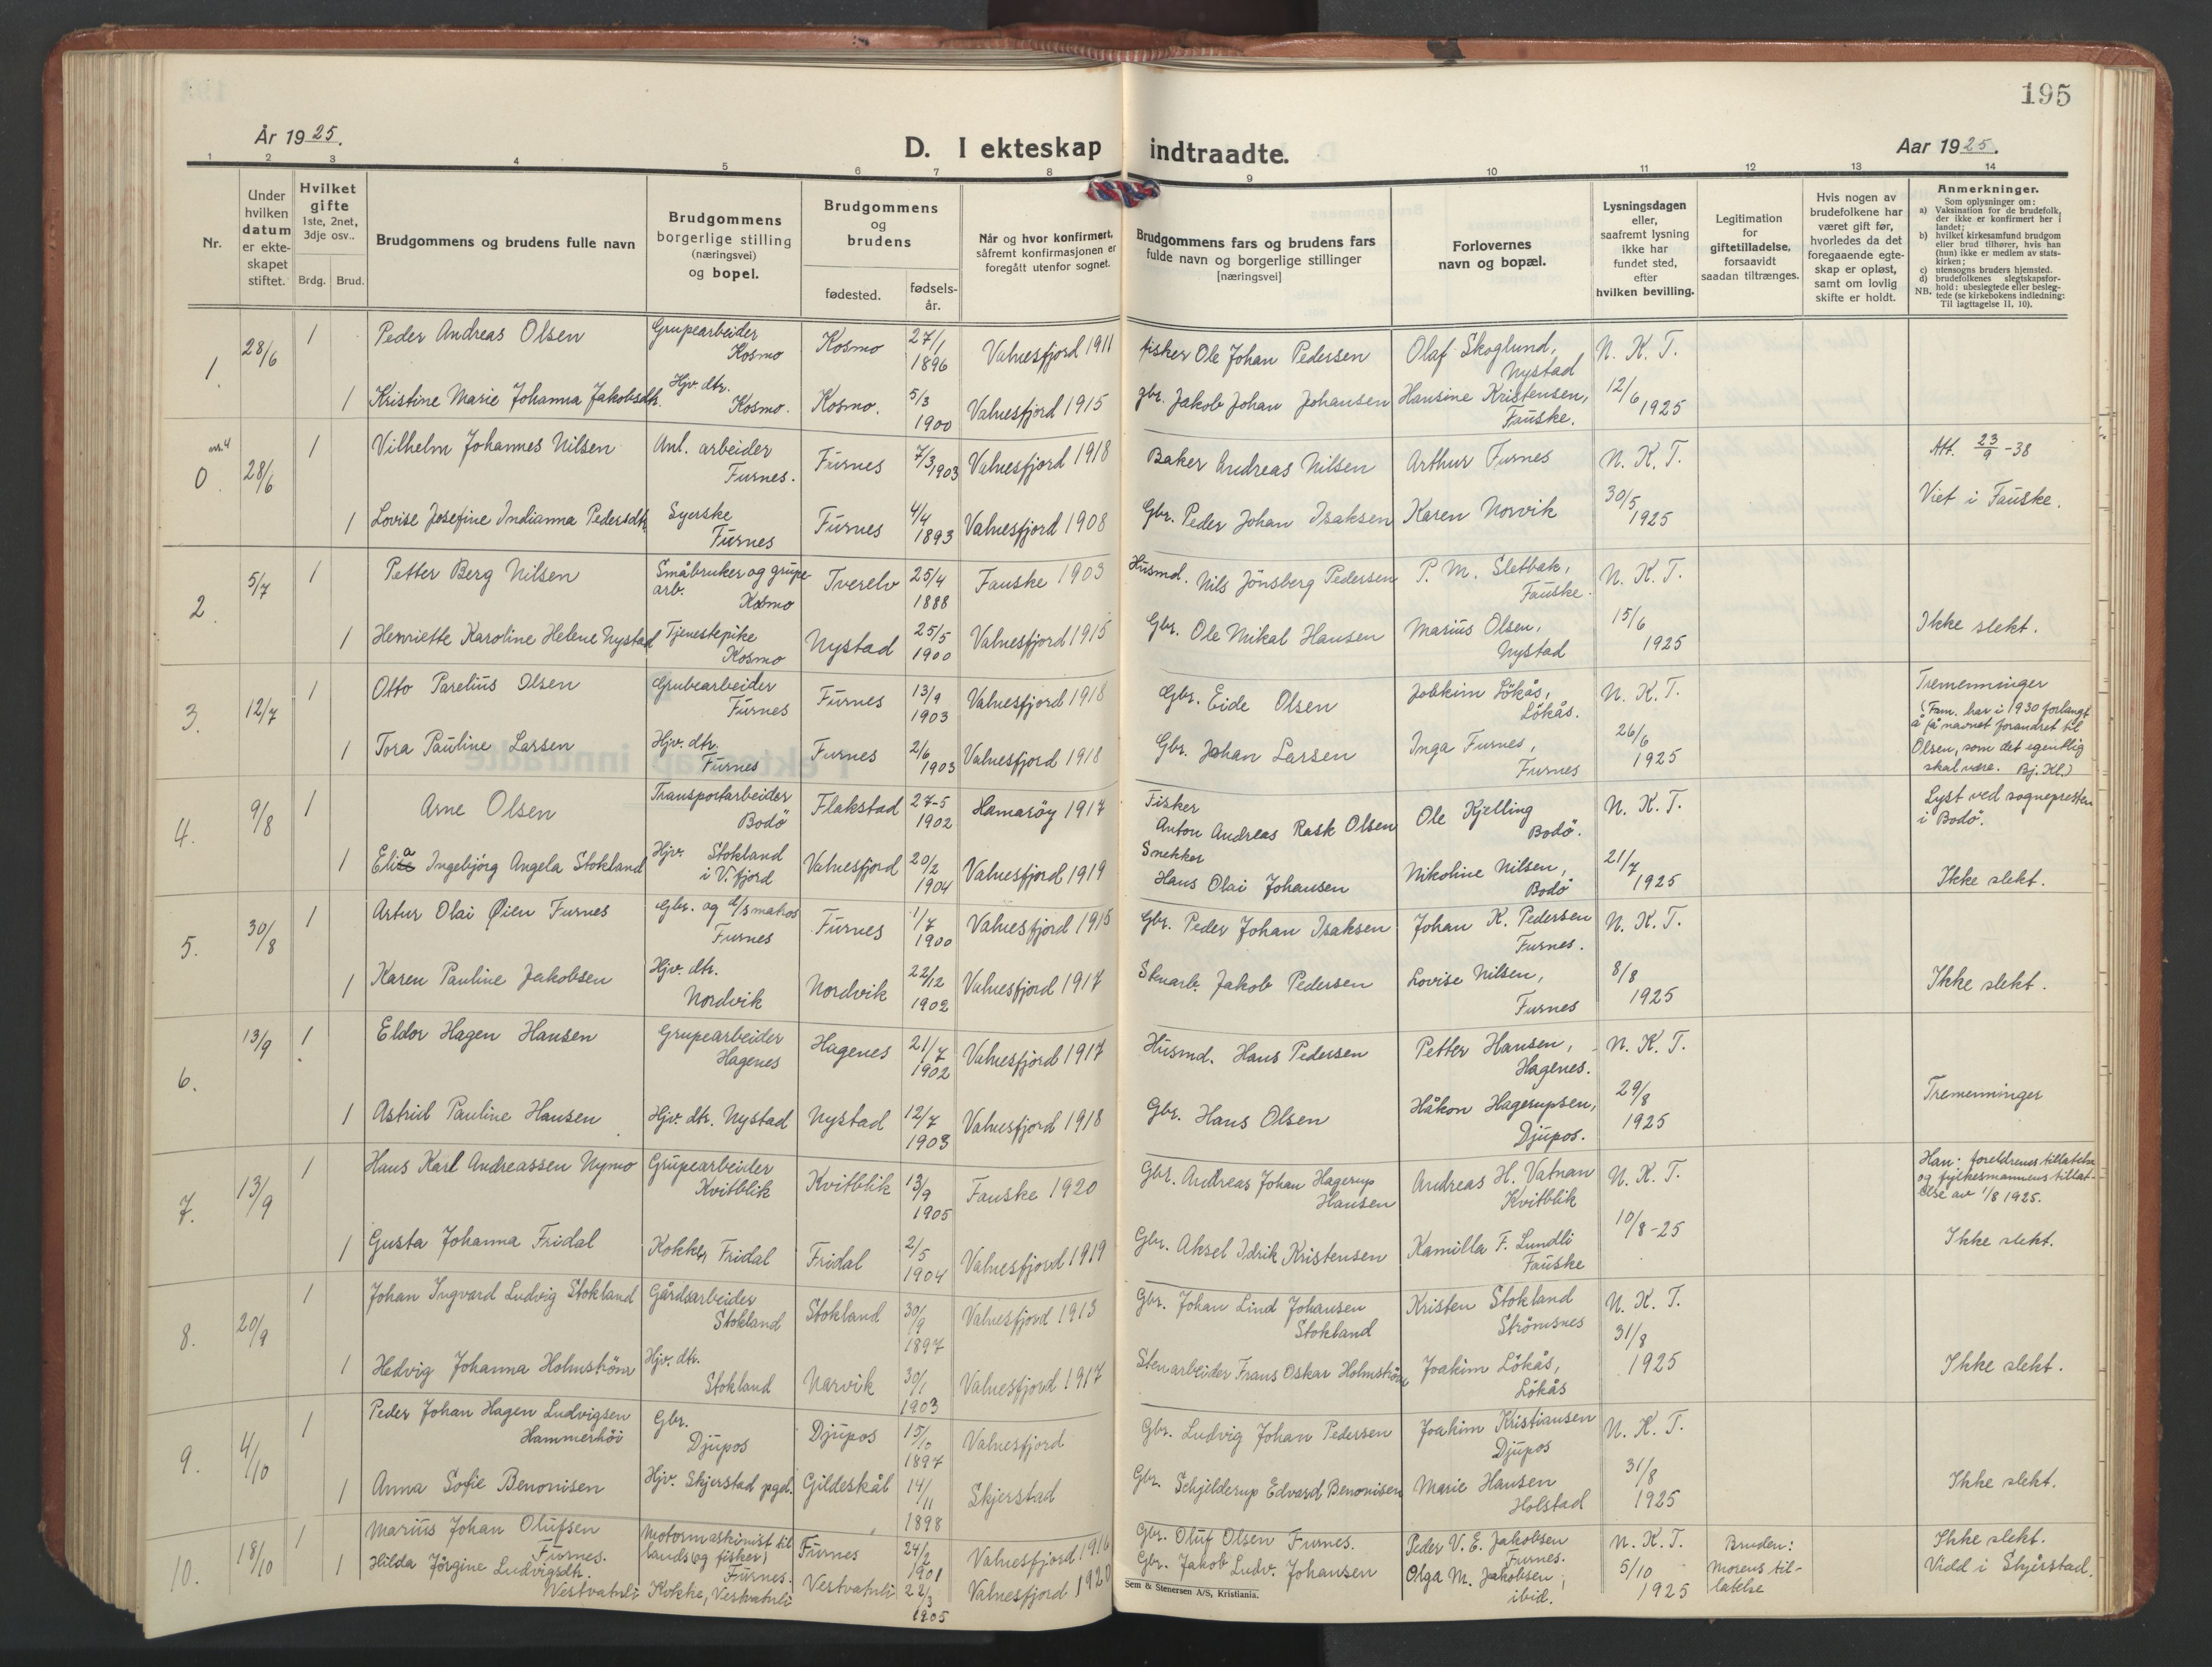 195
År 1925.
D. I ekteskap indtraadte.
Aar 1925.
1 2 3 4 5 6 7 8 9 10 11 12 13 14
Nr.
Under
hvilken
datum
er ekte-
skapet
stiftet.
Hvilket
gifte
1ste, 2net,
3dje osv..
Brdg. Brud.
Brudgommens og brudens fulle navn
Brudgommens
borgerlige stilling
(næringsvei)
og bopel.
Brudgommens
og
brudens
fødested.
fødsels-
år.
Når og hvor konfirmert,
såfremt konfirmasjonen er
foregått utenfor sognet.
Brudgommens fars og brudens fars
fulde navn og borgerlige stillinger
[næringsvei]
Forlovernes
navn og bopæl.
Lysningsdagen
eller,
saafremt lysning
ikke har
fundet sted,
efter
hvilken bevilling.
Legitimation
for
giftetilladelse,
forsaavidt
saadan tiltrænges.
Hvis nogen av
brudefolkene har
været gift før,
hvorledes da det
foregaaende egte-
skap er opløst,
samt om lovlig
skifte er holdt.
Anmerkninger.
Som oplysninger om:
a) Vaksination for de brudefolk,
der ikke er konfirmert her i
landet;
b) hvilket kirkesamfund brudgom
eller brud tilhører, hvis han
(hun) ikke er medlem av stats-
kirken;
c) utensogns bruders hjemsted.
d) brudefolkenes slegtskapsfor-
hold: ubeslegtede eller besleg-
NB. tede (se kirkebokens indledning:
Til iagttagelse II, 10).
1. 28/6 1 Peder Andreas Olsen Grupearbeider Kosmo Kosmo 27/1 1896 Valnesfjord 1911 fisker Ole Johan Pedersen Olaf Skoglund, Nystad N. K. T.
1 Kristine Marie Johanna Jakobsdtr. Hjv. dtr. Kosmo. Kosmo. 5/3 1900 Valnesfjord 1915 gbr. Jakob Johan Johansen Hansine Kristensen, Fauske. 12/6 1925
0. 28/6 1 Vilhelm Johannes Nilsen Anl. arbeider Furnes. Furnes 7/3 1903 Valnesfjord 1918 Baker Andreas Nilsen Arthur Furnes N. K. T. Att. 23/9 -38
1 Lovise Josefine Indianna Pedersdtr Syerske Furnes Furnes 4/4 1893 Valnesfjord 1908 Gbr. Peder Johan Isaksen Karen Norvik 30/5 1925 Viet i Fauske.
2. 5/7 1 Petter Berg Nilsen Småbruker og grupe arb. Kosmo Tverelv 25/4 1888 Fauske 1903 Husmd. Nils Jönsberg Pedersen P. M. Sletbak, Fauske. N. K. T.
1 Henriette Karoline Helene Nystad Tjenestepike Kosmo Nystad 25/5 1900 Valnesfjord 1915 Gbr. Ole Mikal Hansen Marius Olsen, Nystad 15/6 1925 Ikke slekt.
3. 12/7 1 Otto Parelius Olsen Grubearbeider Furnes Furnes 13/9 1903 Valnesfjord 1918 Gbr. Eide Olsen Joakim Lökås, Lökås. N. K. T. Tremenninger
(Fam. har i 1930 forlangt
å få navnet forandret til
Olsen, som det egentlig
skal være. Bj. Kl.)
1 Tora Pauline Larsen Hjv. dtr. Furnes Furnes 2/6 1903 Valnesfjord 1918 Gbr. Johan Larsen Inga Furnes, Furnes 26/6 1925
4. 9/8 1 Arne Olsen Transportarbeider Bodö Flakstad 27-5 1902 Hamarøy 1917 Fisker Anton Andreas Rask Olsen Ole Kjelling Bodö. N. K. T. Lyst ved sognepresten i Bodö.
1 Elisa Ingebjörg Angela Stokland Hjv. Stokland i V. fjord Valnesfjord 20/2 1904 Valnesfjord 1919 Snekker Hans Olai Johansen Nikoline Nilsen, Bodö 21/7 1925 Ikke slekt.
5. 30/8 1 Artur Olai Øien Furnes Gbr. og Furnes Furnes 1/7 1900 Valnesfjord 1915 Gbr. Peder Johan Isaksen Johan K. Pedersen Furnes. N. K. T.
1 Karen Pauline Jakobsen Hjv. dtr. Nordvik Nordvik 22/12 1902 Valnesfjord 1917 Stenarb. Jakob Pedersen Lovise Nilsen, Furnes 8/8 1925 Ikke slekt.
6. 13/9 1 Eldor Hagen Hansen Grupearbeider Hagenes Hagenes 21/7 1902 Valnesfjord 1917 Husmd. Hans Pedersen Petter Hansen, Hagenes. N. K. T.
1 Astrid Pauline Hansen Hjv. dtr. Nystad Nystad 12/7 1903 Valnesfjord 1918 Gbr. Hans Olsen Håkon Hagerupsen, Djupos. 29/8 1925 Tremenninger
7. 13/9 1 Hans Karl Andreassen Nymo Grupearbeider Kvitblik Kvitblik 13/9 1905 Fauske 1920 Gbr. Andreas Johan Hagerup Hansen Andreas H. Vatnan Kvitblik N. K. T. Han: foreldrenes tillatelse
og fylkesmannens tillat-
else av 1/8 1925.
1 Gusta Johanna Fridal Kokke, Fridal Fridal 2/5 1904 Valnesfjord 1919 Gbr. Aksel Idrik Kristensen Kamilla F. Lundli Fauske 10/8-25 Ikke slekt.
8. 20/9 1 Johan Ingvard Ludvig Stokland Gårdsarbeider Stokland Stokland 30/9 1897 Valnesfjord 1913 Gbr. Johan Lind Johansen Stokland Kristen Stokland Strömsnes N. K. T.
1 Hedvig Johanna Holmström Hjv. dtr. Stokland Narvik 30/1 1903 Valnesfjord 1917 Stenarbeider Frans Oskar Holmström Joakim Lökås, Lökås 31/8 1925 Ikke slekt.
9. 4/10 1 Peder Johan Hagen Ludvigsen Hammerhöi Gbr. Djupos Djupos 15/10 1897 Valnesfjord Gbr. Ludvig Johan Pedersen Joakim Kristiansen Djupos N. K. T.
1 Anna Sofie Benonisen Hjv. Skjerstad pgd. Gildeskål 14/11 1898 Skjerstad Gbr. Schjelderup Edvard Benonisen Marie Hansen Holstad 31/8 1925 Ikke slekt.
10. 18/10 1 Marius Johan Olufsen Furnes. Motormaskinist til lands (og fisker) Furnes. Furnes 24/2 1901 Valnesfjord 1916 Gbr. Oluf Olsen Furnes. Peder V. E. Jakobsen Furnes. N. K. T. Bruden: Ikke slekt.
1 Hilda Jörgine Ludvigsdtr. Vestvatnli Kokke, Vestvatnli Vestvatnli 22/3 1905 Valnesfjord 1920 Gbr. Jakob Ludv. Johansen Olga M. Jakobsen, ibid. 5/10 1925 Morens til-
latelse Vidd i Skjerstad.
Sem & Stenersen A/S, Kristiania.